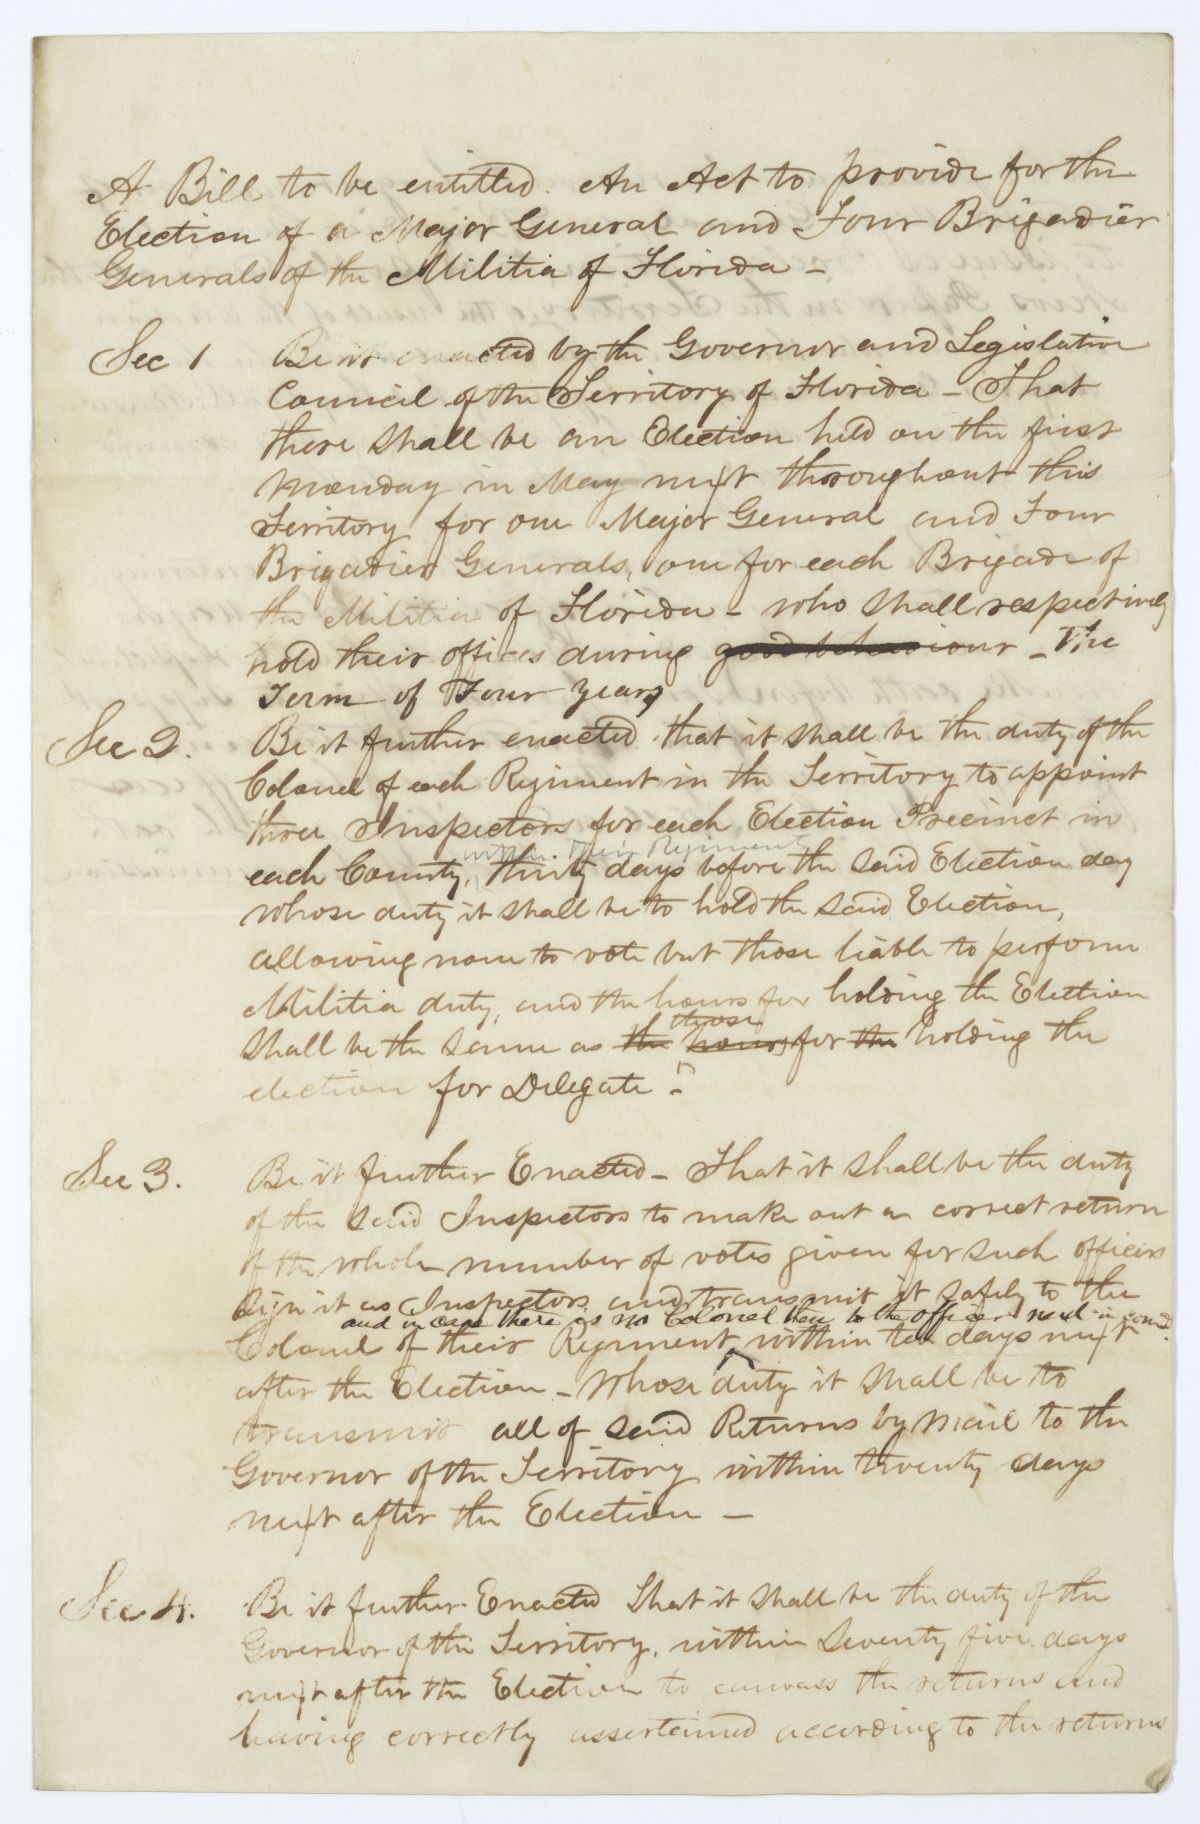 A Bill to be entitled. An Act to provide for the
Election of a Major General and Four Brigadier
Generals of the Militia of Florida -
Sec 1 Be it enacted by the Governor and Legislative
Council of the Territory of Florida - That
there shall be an Election held on the first
Monday in May next thoroughout this
Territory for one Major General and Four
Brigadier Generals, one for each Brigade of
the Militia of Florida - who shall respectively
hold their offices during good behaviour - The
Term of Four years
Sec 2. Be it further enacted that it shall be the duty of the
Colonel of each Regiment in the Territory to appoint
three Inspectors for each Election Precinct in
within their Regiment
each County, thirty days before the said Election day
whose duty it shall be to hold the said Election,
allowing none to vote but those liable to perform
Militia duty, and the hours for holding the Election
those
shall be the same as the hours for the holding the
election for Delegate -
Sec 3. Be it further Enacted - That it shall be the duty
of the said Inspectors to make out a correct return
of the whole number of votes given for such officers
sign it as Inspectors and transmit it safely to the
and in case there is no Colonel then to the officer next in comd.
Colonel of their Regiment within ten days next
after the Election - Whose duty it shall be to
transmit all of said Returns by mail to the
Governor of the Territory within twenty days
next after the Election -
Sec 4. Be it further Enacted That it shall be the duty of the
Governor of the Territory, within Seventy five days
next after the Election to canvass the returns and
having correctly assertained according to the returns